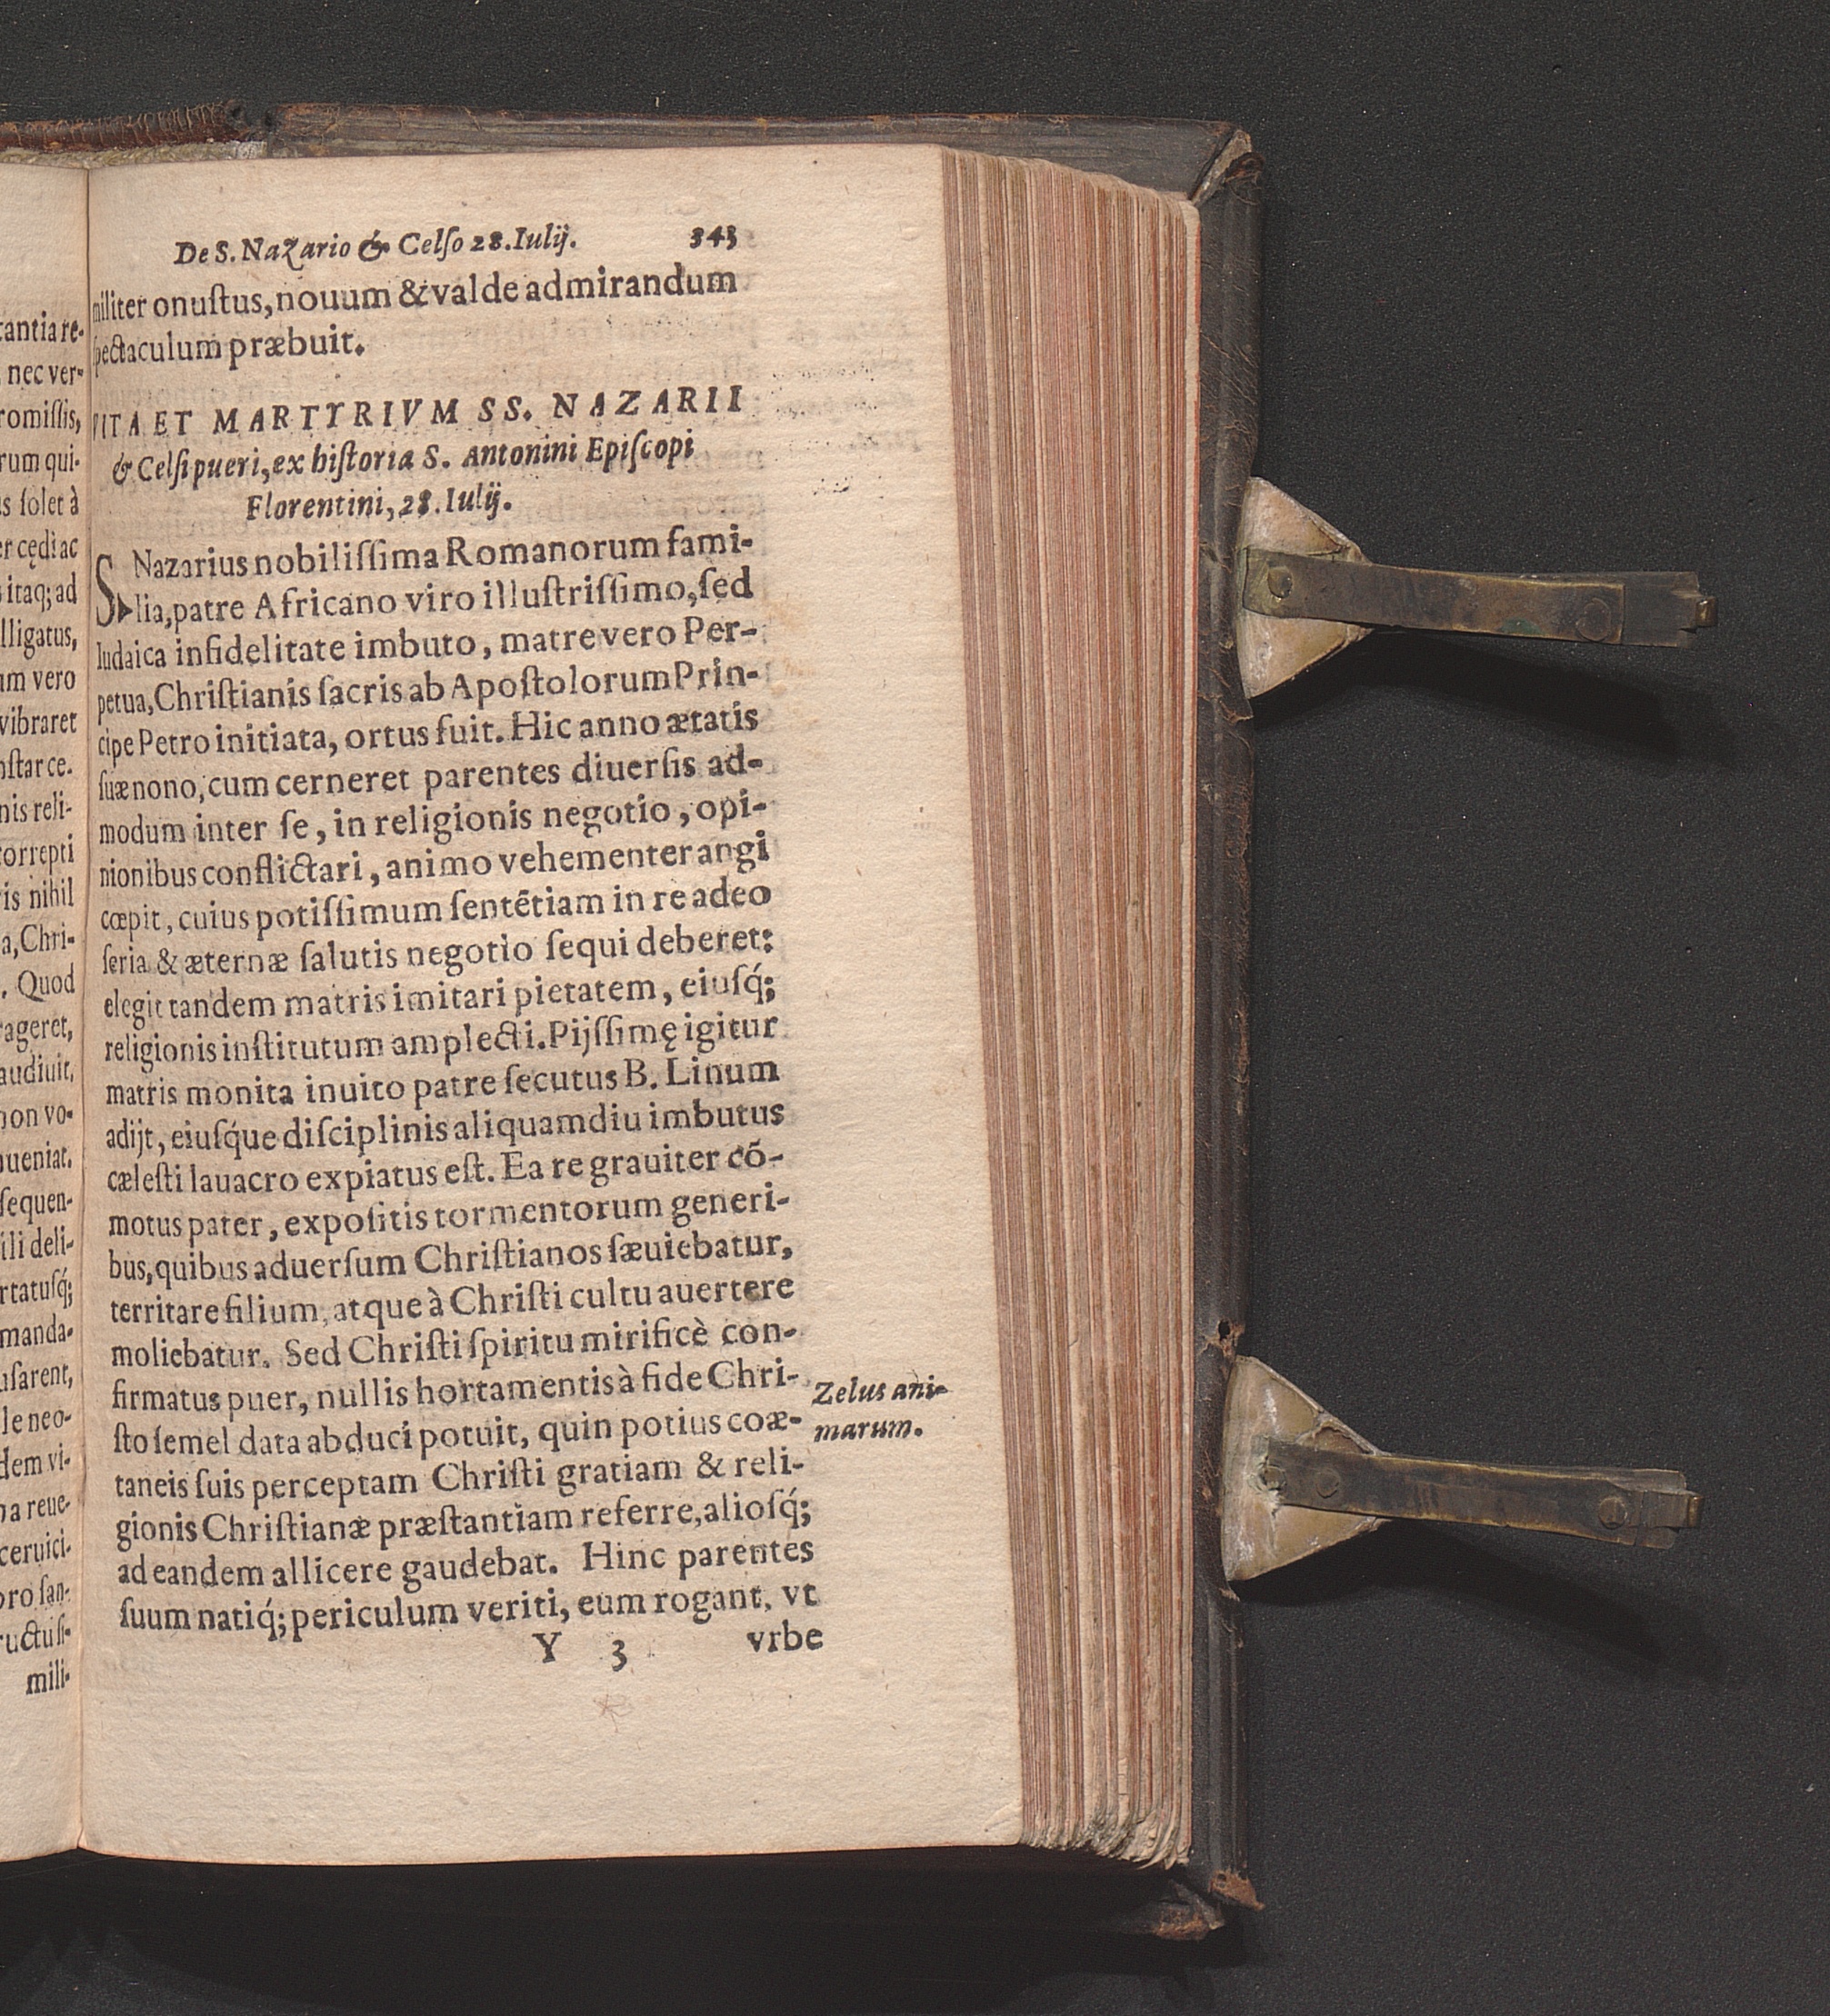 tantia re-
nec ver-
romiſſis,
rum qui-
s ſolet à
er cędi ac
itaq; ad
lligatus,
um vero
vibraret
nſtar ce.
nis reli-
correpti
is nihil
a, Chri-
. Quod
ageret,
audiuit,
non vo-
ueniat.
ſequen-
ili deli-
rtatuſq́;
manda-
uſarent,
le neo-
dem vi-
na reue-
ceruici-
pro ſan-
ructu ſi-
mili-
De S. Nazario & Celſo 28. Iulij. 343
militer onuſtus, nouum & valde admirandum
ſpectaculum præbuit.
VITA ET MARTYRIVM SS. NAZARII
& Celſi pueri, ex hiſtoria S. Antonini Epiſcopi
Florentini, 28. Iulij.
S. Nazarius nobiliſſima Romanorum fami-
lia, patre Africano viro illuſtriſſimo, ſed
Iudaica infidelitate imbuto, matre vero Per-
petua, Chriſtianis ſacris ab Apoſtolorum Prin-
cipe Petro initiata, ortus fuit. Hic anno ætatis
ſuæ nono, cum cerneret parentes diuerſis ad-
modum inter ſe, in religionis negotio, opi-
nionibus conflictari, animo vehementer angi
cœpit, cuius potiſſimum ſentētiam in re adeo
ſeria & æternæ ſalutis negotio ſequi deberet:
elegit tandem matris imitari pietatem, eiuſq́;
religionis inſtitutum amplecti. Pijſſimę igitur
matris monita inuito patre ſecutus B. Linum
adijt, eiuſq́ue diſciplinis aliquamdiu imbutus
cæleſti lauacro expiatus eſt. Ea re grauiter cō-
motus pater, expoſitis tormentorum generi-
bus, quibus aduerſum Chriſtianos ſæuiebatur,
territare filium, atque à Chriſti cultu auertere
moliebatur. Sed Chriſti ſpiritu mirificè con-
firmatus puer, nullis hortamentis à fide Chri-
ſto ſemel data abduci potuit, quin potius coæ-
taneis ſuis perceptam Chriſti gratiam & reli-
gionis Chriſtianæ præſtantiam referre, alioſq́;
ad eandem allicere gaudebat. Hinc parentes
ſuum natiq́; periculum veriti, eum rogant, vt
Y 3 vrbe
Zelus ani-
marum.